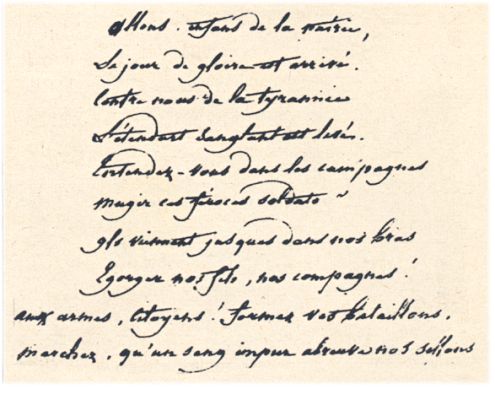 Allons enfans de la patrie,
Le jour de gloire est arrivé.
Contre nous de la tyrannie
L'étendart sanglant est levé.
Entendez-vous dans les campagnes
mugir ces féroces soldats
ils viennent jusques dans nos bras
Egorger nos fils, nos compagnes!
aux armes, citoyens! formez vos bataillons.
marchez, qu'un sang impur abreuve nos sillons